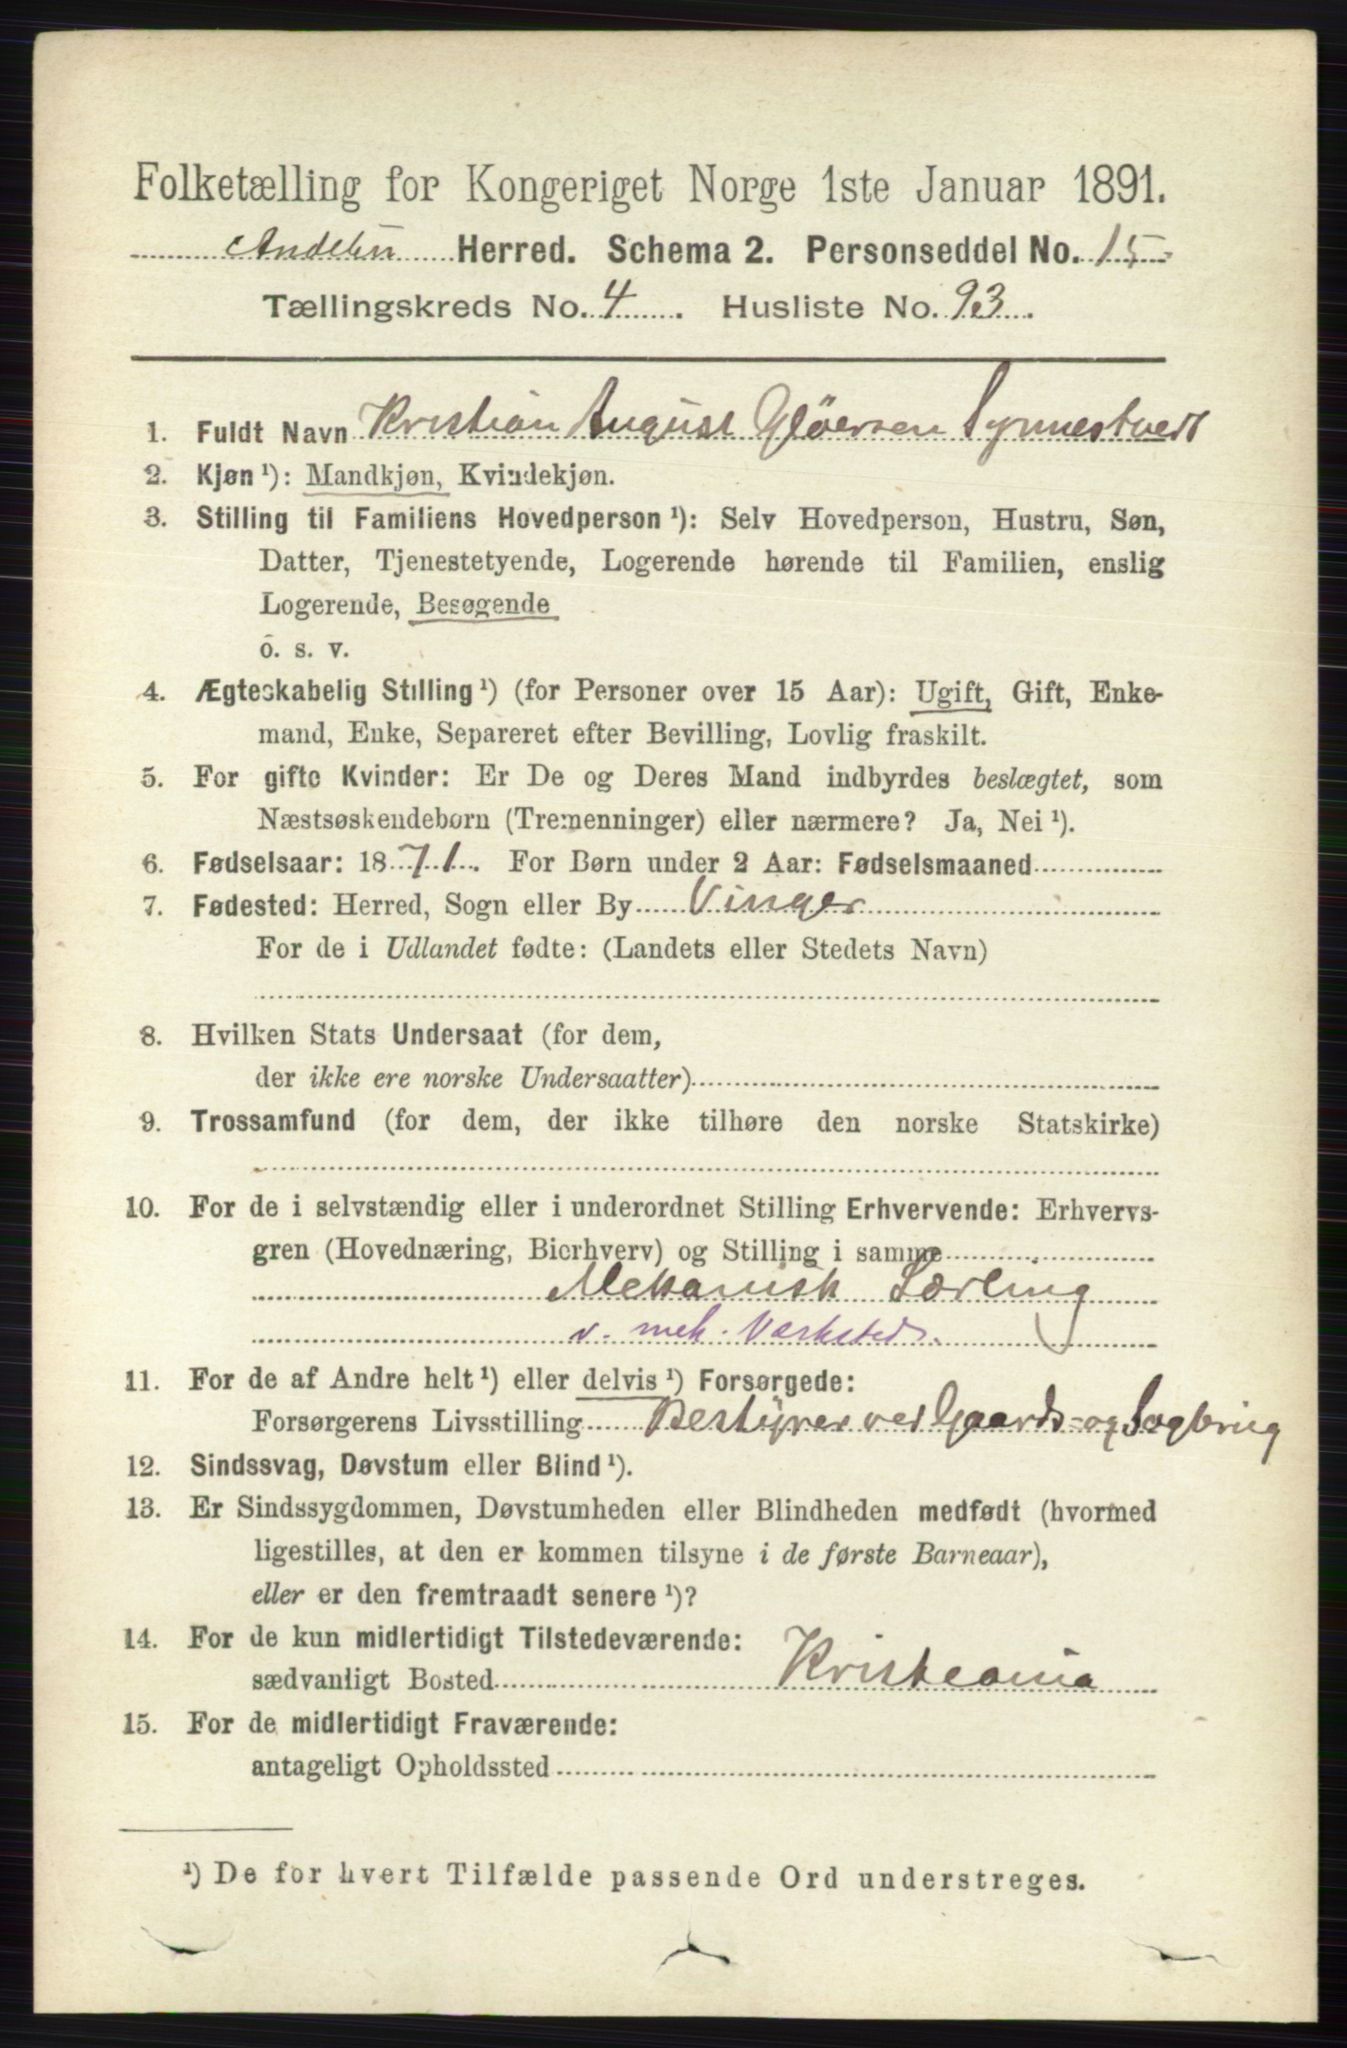 Folketælling for Kongeriget Norge 1ste Januar 1891.
Andebu Herred. Schema 2. Personseddel No. 15
Tællingskreds No. 4 . Husliste No. 93.
1. Fuldt Navn Kristian August Gløersen Synnestvedt
2. Kjøn ¹): Mandkjøn, Kvindekjøn.
3. Stilling til Familiens Hovedperson ¹): Selv Hovedperson, Hustru, Søn,
Datter, Tjenestetyende, Logerende hørende til Familien, enslig
Logerende, Besøgende
o. s. v.
4. Ægteskabelig Stilling ¹) (for Personer over 15 Aar): Ugift, Gift, Enke-
mand, Enke, Separeret efter Bevilling, Lovlig fraskilt.
5. For gifte Kvinder: Er De og Deres Mand indbyrdes beslægtet, som
Næstsøskendebørn (Tremenninger) eller nærmere? Ja, Nei ¹).
6. Fødselsaar: 1871. For Børn under 2 Aar: Fødselsmaaned
7. Fødested: Herred, Sogn eller By Vinger
For de i Udlandet fødte: (Landets eller Stedets Navn)
8. Hvilken Stats Undersaat (for dem,
der ikke ere norske Undersaatter)
9. Trossamfund (for dem, der ikke tilhøre den norske Statskirke)
10. For de i selvstændig eller i underordnet Stilling Erhvervende: Erhvervs-
gren (Hovednæring, Bierhverv) og Stilling i samme
Mekanisk Lærling
v. mek. Værksted.
11. For de af Andre helt ¹) eller delvis ¹) Forsørgede:
Forsørgerens Livsstilling Bestyrer ved Gaards- og Sagbrug
12. Sindssvag, Døvstum eller Blind ¹).
13. Er Sindssygdommen, Døvstumheden eller Blindheden medfødt (hvormed
ligestilles, at den er kommen tilsyne i de første Barneaar),
eller er den fremtraadt senere ¹)?
14. For de kun midlertidigt Tilstedeværende:
sædvanligt Bosted Kristiania
15. For de midlertidigt Fraværende:
antageligt Opholdssted
¹) De for hvert Tilfælde passende Ord understreges.